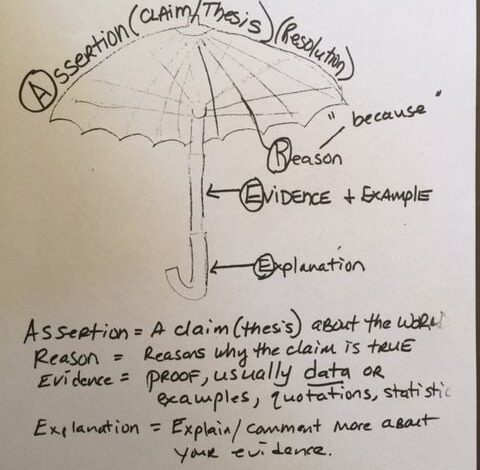 Assertion (Claim/Thesis) (Resolution)
"because"
Reason
EVIDENCE + EXAMPLE
Explanation
Assertion = A claim (thesis) about the
Reason = Reasons why the claim is TRUE
Evidence = PROOF, usually data or
examples, quotations, statistic
Explanation = Explain/comment more about
your evidence.